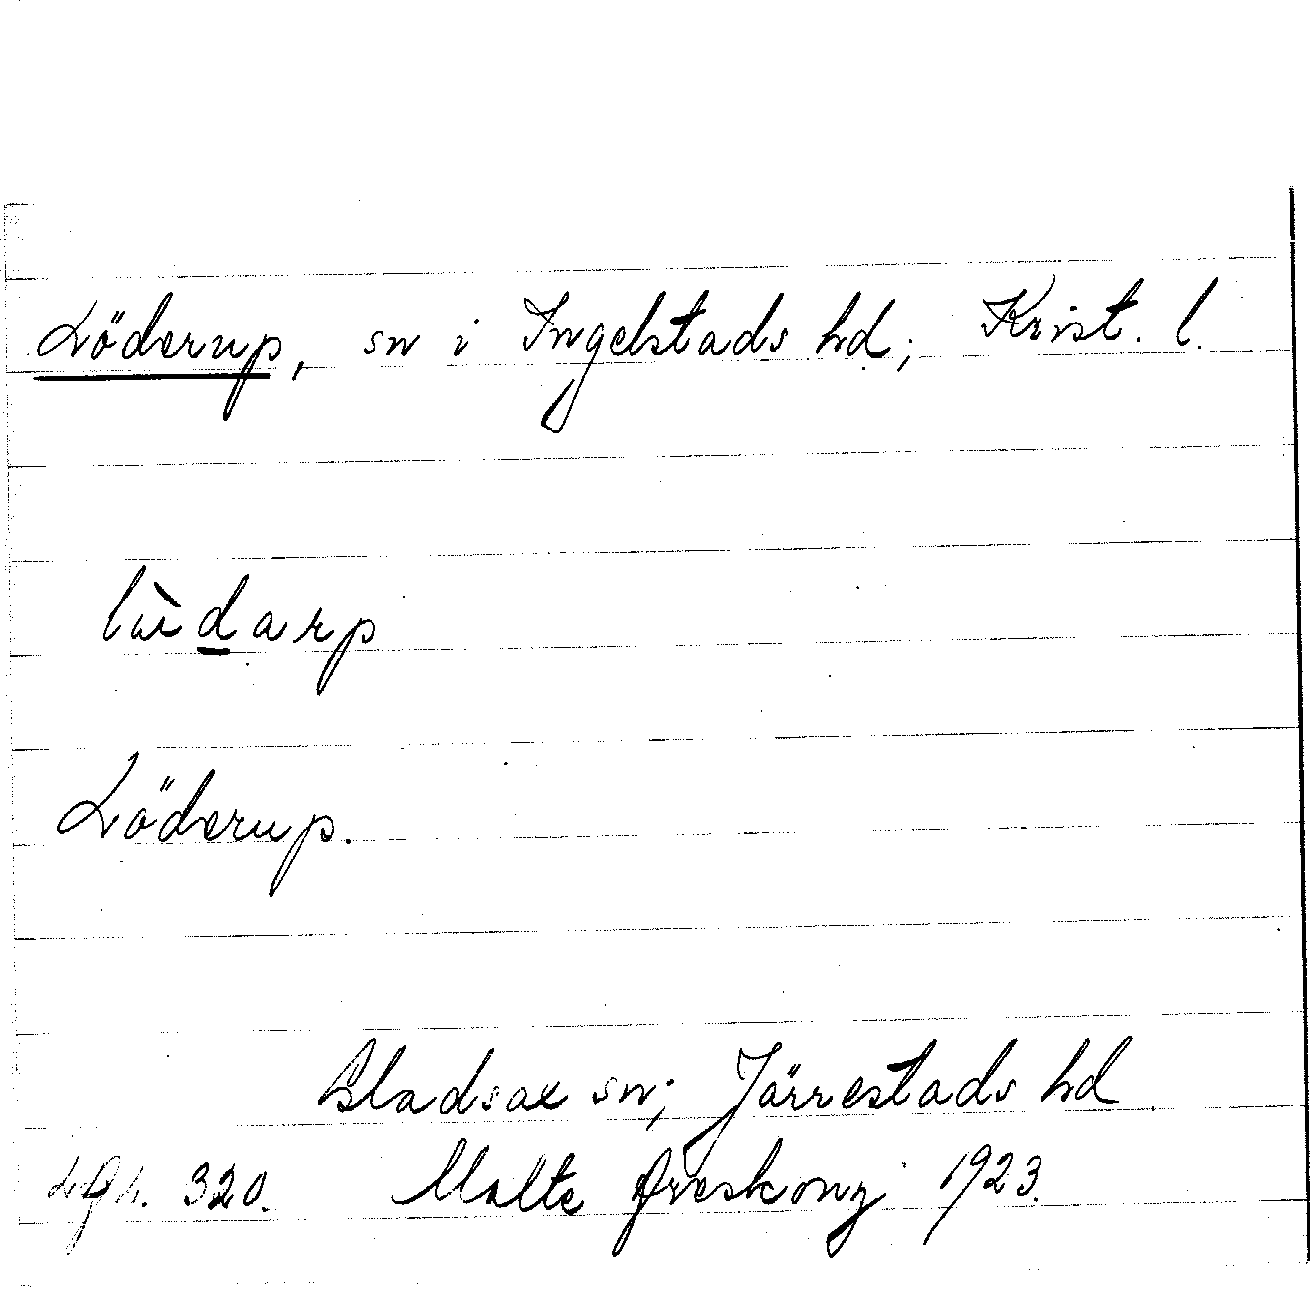 Löderup, sn i Ingelstads hd; Krist. l.
lùdarp
Löderup.
Gladsax sn; Järrestads hd
Lgh. 320. Malte Areskong 1923.